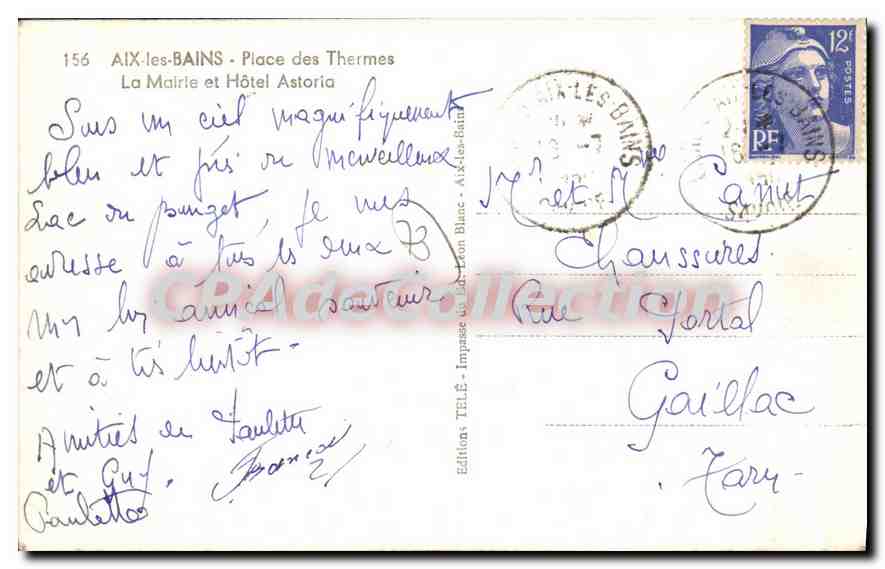 156 AIX-les-BAINS - Place des Thermes
La Mairie et Hôtel Astoria
Sous un ciel magnifiquement
bleu et près du merveilleux
Lac du Bourget, je vous
adresse à tous les deux
un amical souvenir
et à très bientôt -
Amitiés de Paulette
et Guy.
Paulette
Editions TELÉ - Impasse du Bd. Léon Blanc - Aix-les-Bains
AIX-LES-BAINS
AIX-LES-BAINS
12F
POSTES
RF
Mr et Mme Canut
Chaussures.
Rue Portal
Gaillac
Tarn -
CPAdeCollection